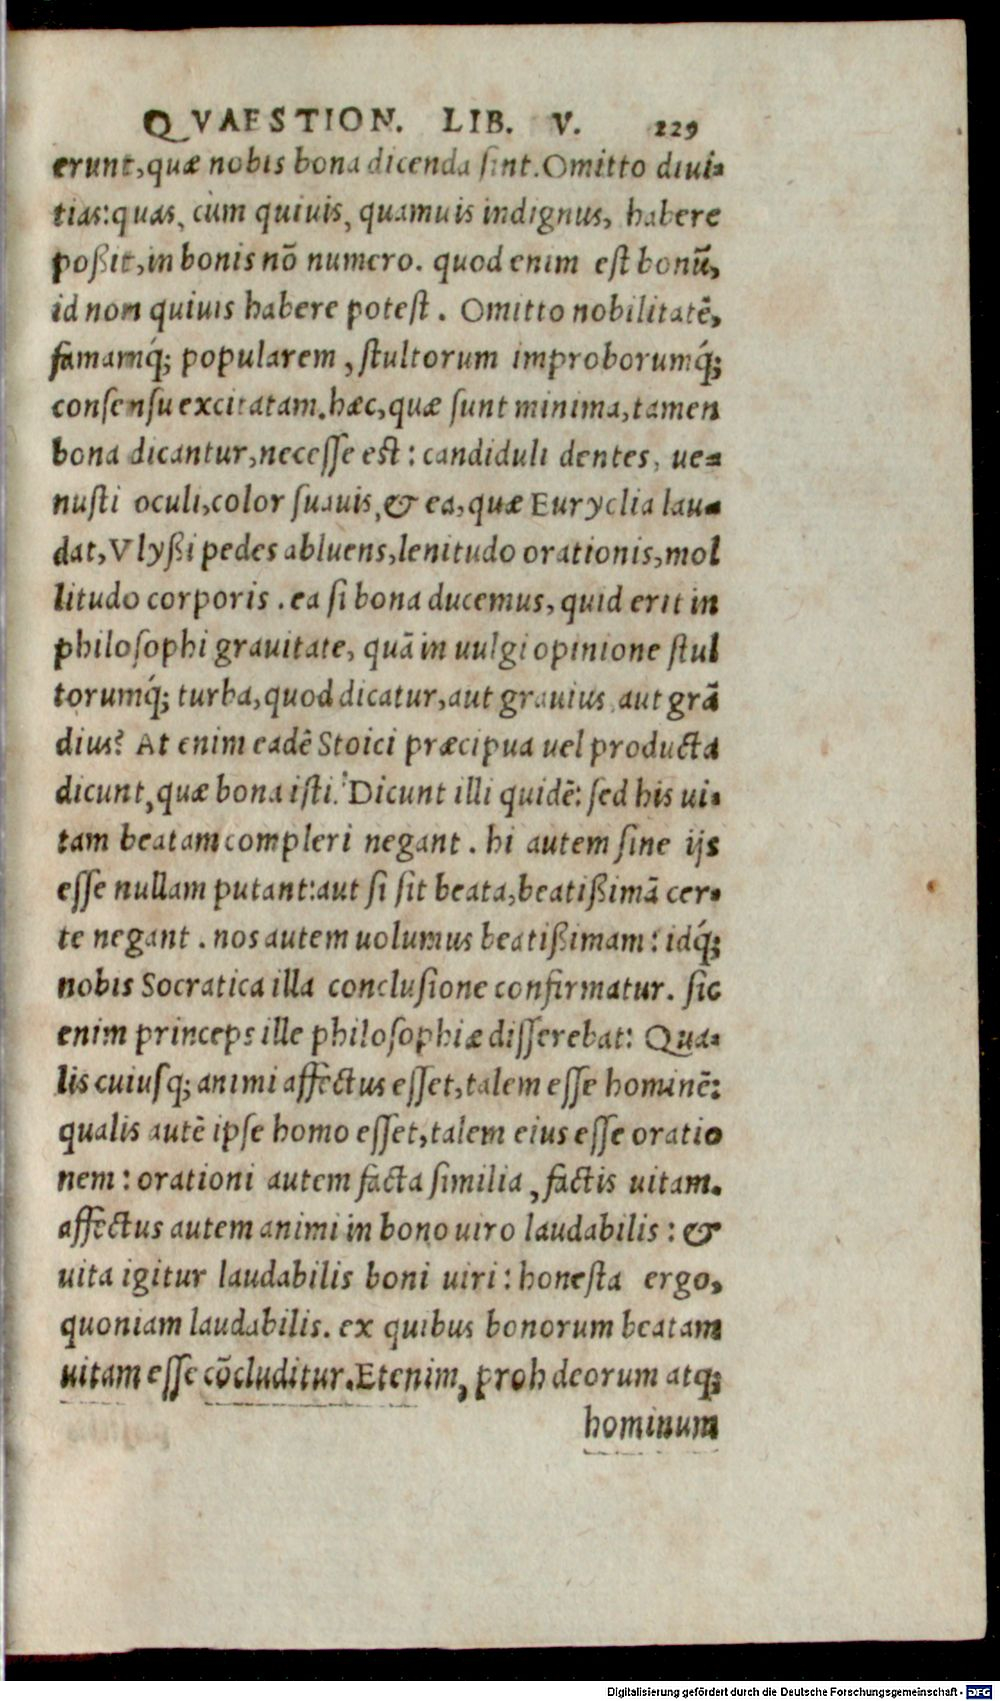 QVAESTION. LIB. V. 229
erunt, quæ nobis bona dicenda ſint. Omitto diui-
tias: quas, cùm quiuis, quamuis indignus, habere
poßit, in bonis nō numero. quod enim eſt bonū,
id non quiuis habere poteſt. Omitto nobilitatē,
famamq́; popularem, ſtultorum improborumq́;
conſenſu excitatam. hæc, quæ ſunt minima, tamen
bona dicantur, neceſſe eſt: candiduli dentes, ue-
nuſti oculi, color ſuauis, & ea, quæ Euryclia lau-
dat, Vlyßi pedes abluens, lenitudo orationis, mol
litudo corporis. ea ſi bona ducemus, quid erit in
philoſophi grauitate, quā in uulgi opinione ſtul
torumq́; turba, quod dicatur, aut grauius, aut grā
dius? At enim eadē Stoici præcipua uel producta
dicunt, quæ bona iſti? Dicunt illi quidē: ſed his ui-
tam beatam compleri negant. hi autem ſine ijs
eſſe nullam putant: aut ſi ſit beata, beatißimā cer-
te negant. nos autem uolumus beatißimam: idq́;
nobis Socratica illa concluſione confirmatur. ſic
enim princeps ille philoſophiæ diſſerebat: Qua-
lis cuiuſq; animi affectus eſſet, talem eſſe hominē:
qualis autē ipſe homo eſſet, talem eius eſſe oratio
nem: orationi autem facta ſimilia, factis uitam.
affectus autem animi in bono uiro laudabilis: &
uita igitur laudabilis boni uiri: honeſta ergo,
quoniam laudabilis. ex quibus bonorum beatam
uitam eſſe cōcluditur. Etenim, proh deorum atq;
hominum
Digitalisierung gefördert durch die Deutsche Forschungsgemeinschaft - DFG